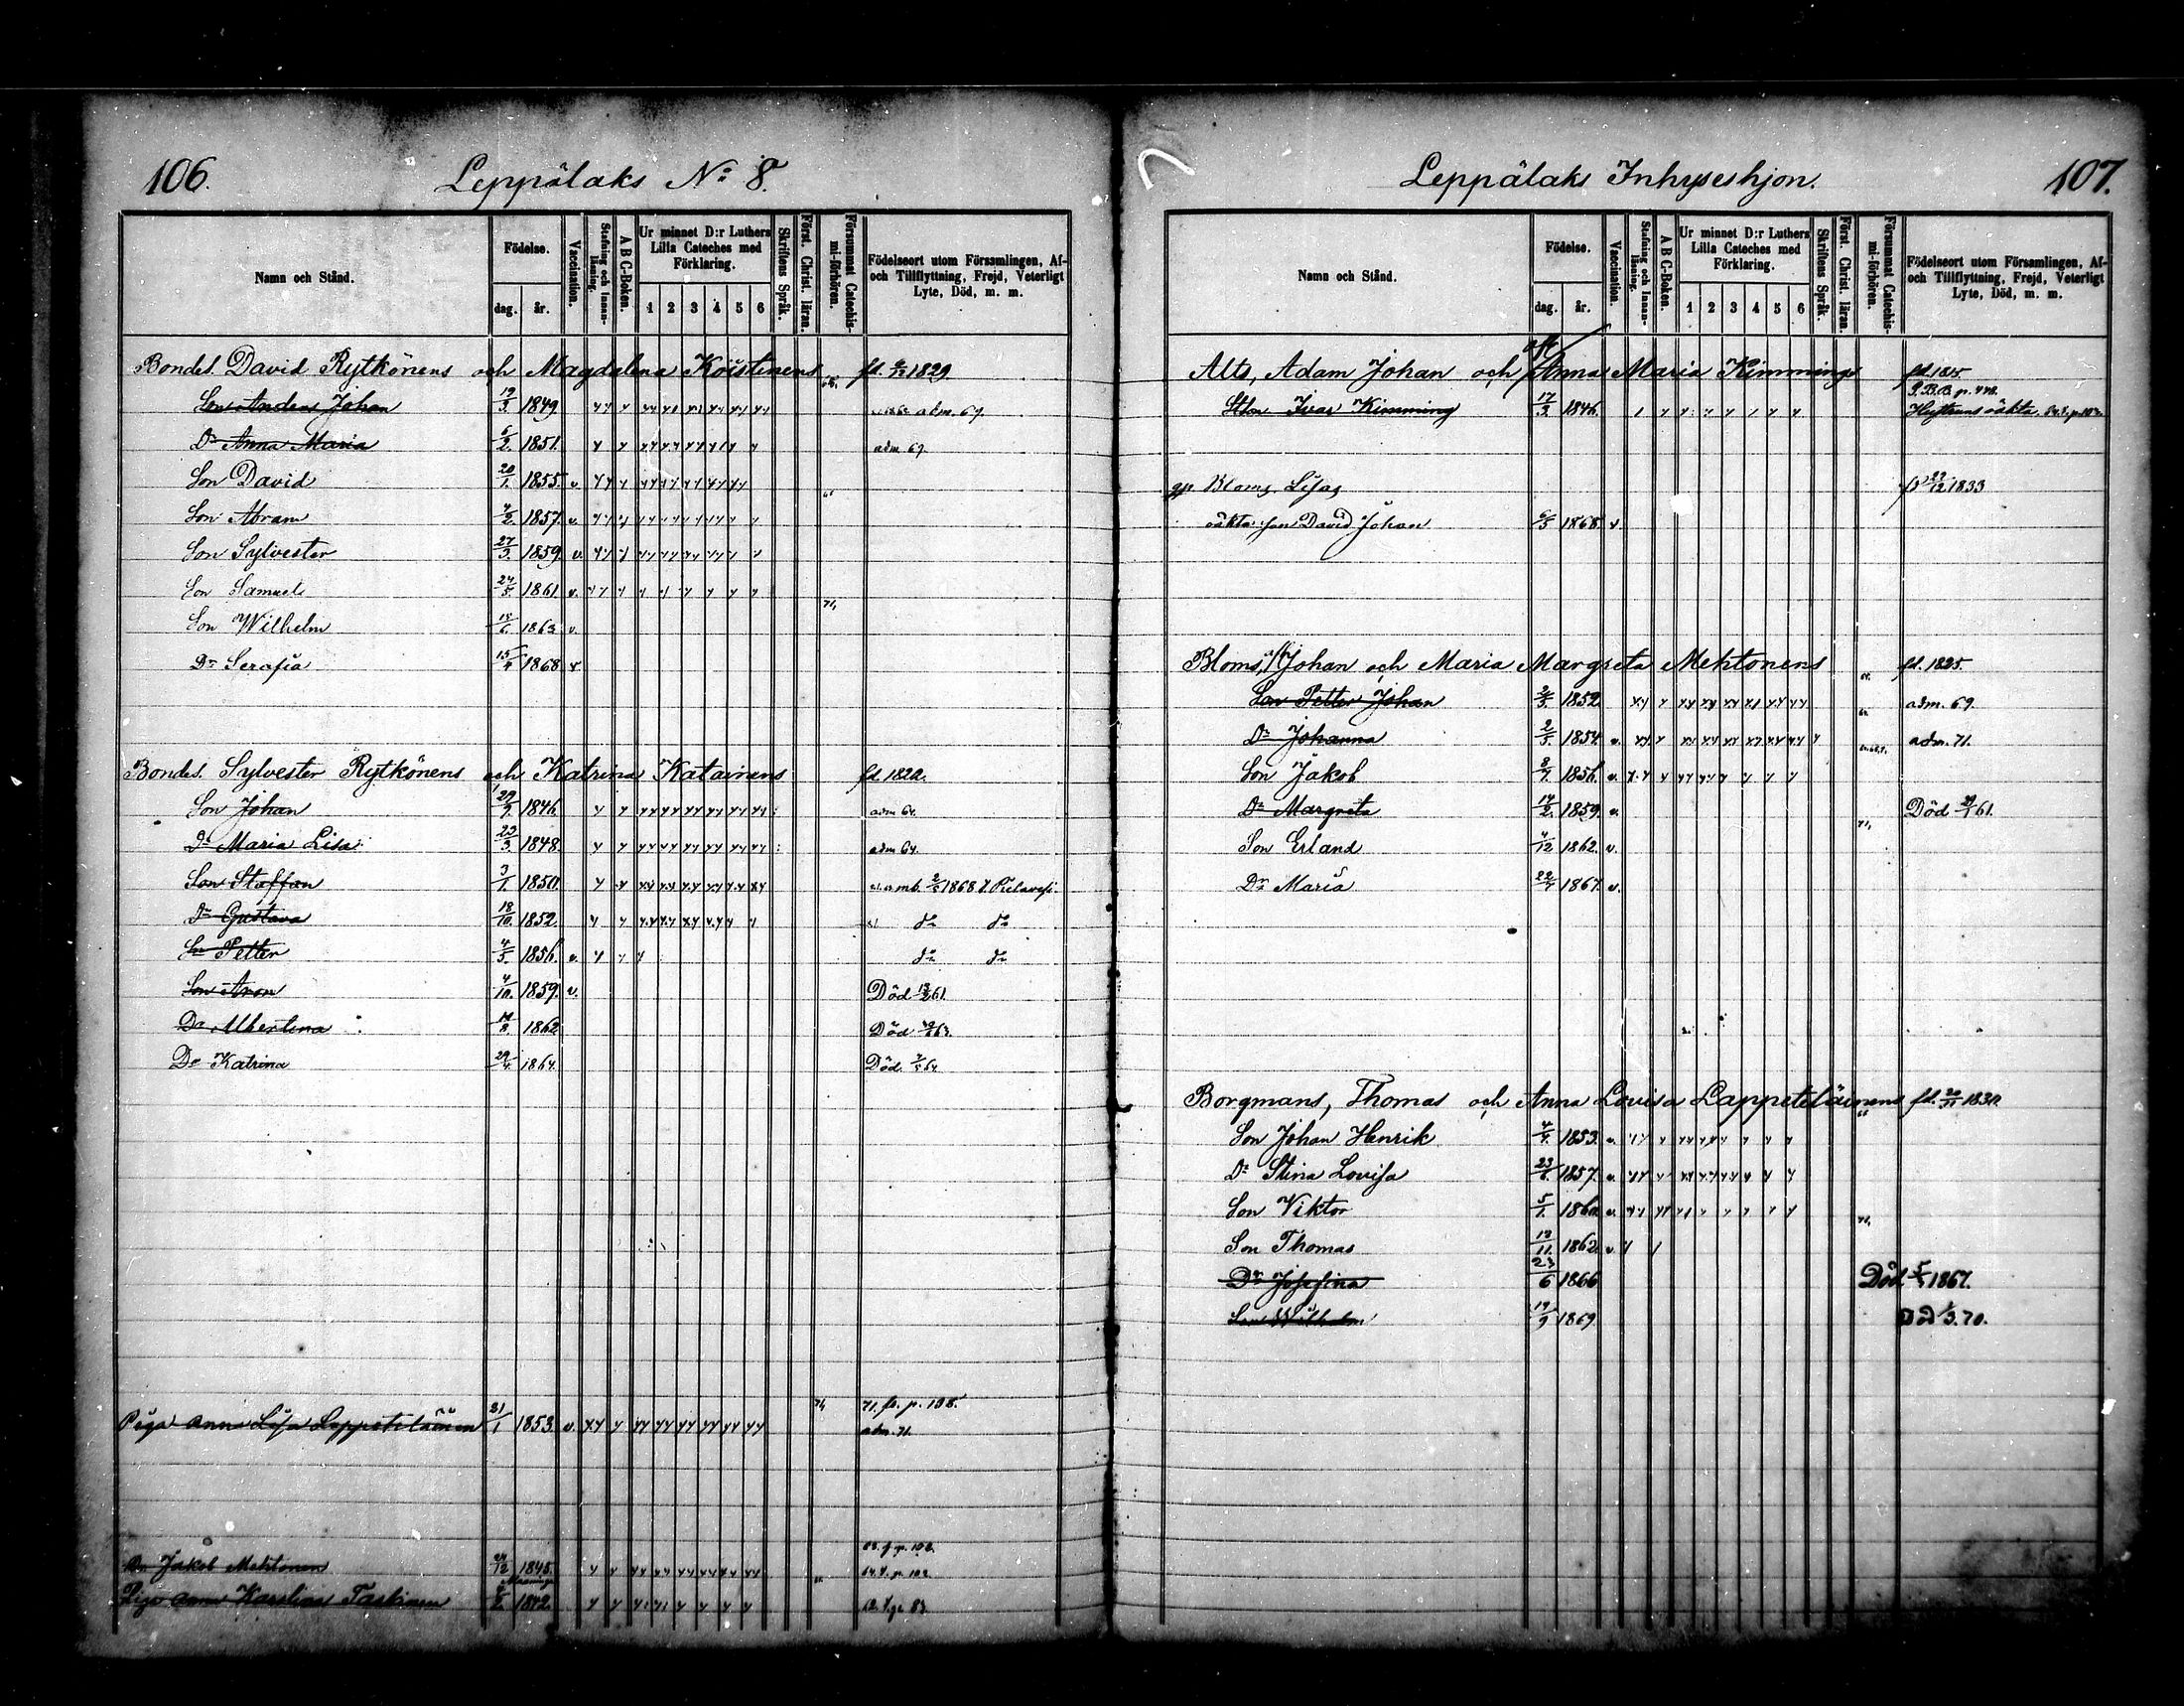 106.
Leppälaks No 8.
Namn och Stånd.
Födelse.
dag. år.
Vaccination.
Stafning och Innanläsning.
A B C-Boken.
Ur minnet D:r Luthers Lilla Cateches med Förklaring.
1 2 3 4 5 6
Skriftens Språk.
Först. Christ. läran.
Försummat Catechismi-förhören.
Födelseort utom Församlingen, Af- och Tillflyttning, Frejd, Veterligt Lyte, Död, m. m.
Bondes. David Rytkönens och Magdalena Koistinens 1829
Son Anders Johan 19/3 1849 adm. 69.
Dr Anna Maria 5/2. 1851. adm. 69.
Son David 20/1. 1855. v.
Son Abram 4/2. 1857. v.
Son Sylvester 27/3. 1859 v.
Son Samuel 24/5 1861 v.
Son Wilhelm 1863 v.
Dr Serafia 1868 v.
Bondes. Sylvester Rytkönens och Katrina Katainens fd 1822.
Son Johan 29/9. 1846. adm 64.
Dr Maria Lisa 23/3. 1848 adm 64.
Son Staffan 3/1. 1850. 1868 t. Pielavesi
Dr Gustava 18/10. 1852. do do
Son Petter 4/5. 1856. v. do do
Son Aron 4/10. 1859. v. Död 61.
Dr Albertina 14/8. 1862 Död 63.
Dr Katrina 29/4 1864. Död 64.
Piga Anna Lisa Lappeteläinen 31/1 1853 v. 71. fr. p. 108.
adm. 71.
Dr Jakob Mehtonen 24/12 1845. 64. t. p. 102.
Piga Anna Karolina Taskinen 1842.
Leppälaks Inhyseshjon.
107.
Namn och Stånd.
Födelse.
dag. år.
Vaccination.
Stafning och Innanläsning.
A B C-Boken.
Ur minnet D:r Luthers Lilla Cateches med Förklaring.
1 2 3 4 5 6
Skriftens Språk.
Först. Christ. läran.
Försummat Catechismi-förhören.
Födelseort utom Församlingen, Af- och Tillflyttning, Frejd, Veterligt Lyte, Död, m. m.
Alts, Adam Johan och Anna Maria Kimmings
Ivar Kimming 17/3. 1846. Hustruns oäkta
Bloms, Lisas 1833
oäkta son David Johan 6/5 1868 v.
Bloms, Johan och Maria Margreta Mehtonens fd. 1825.
Son Petter Johan 1852 adm. 69.
Dr Johanna 2/5. 1854. v. adm. 71.
Son Jakob 1856. v.
Dr Margreta 14/2. 1859. v. Död 61.
Son Erland 4/12 1862. v.
Dr Maria 1867. v.
Borgmans, Thomas och Anna Lovisa Lappeteläinens fd. 1830.
Son Johan Henrik 1853. v.
Dr Stina Lovisa 23/6. 1857. v.
Son Viktor 5/1. 1860. v.
Son Thomas 13/11. 1862. v
Dr Josefina 23/6 1866 Död 1867.
Son Wilhelm 19/9 1869 Död 1/3. 70.